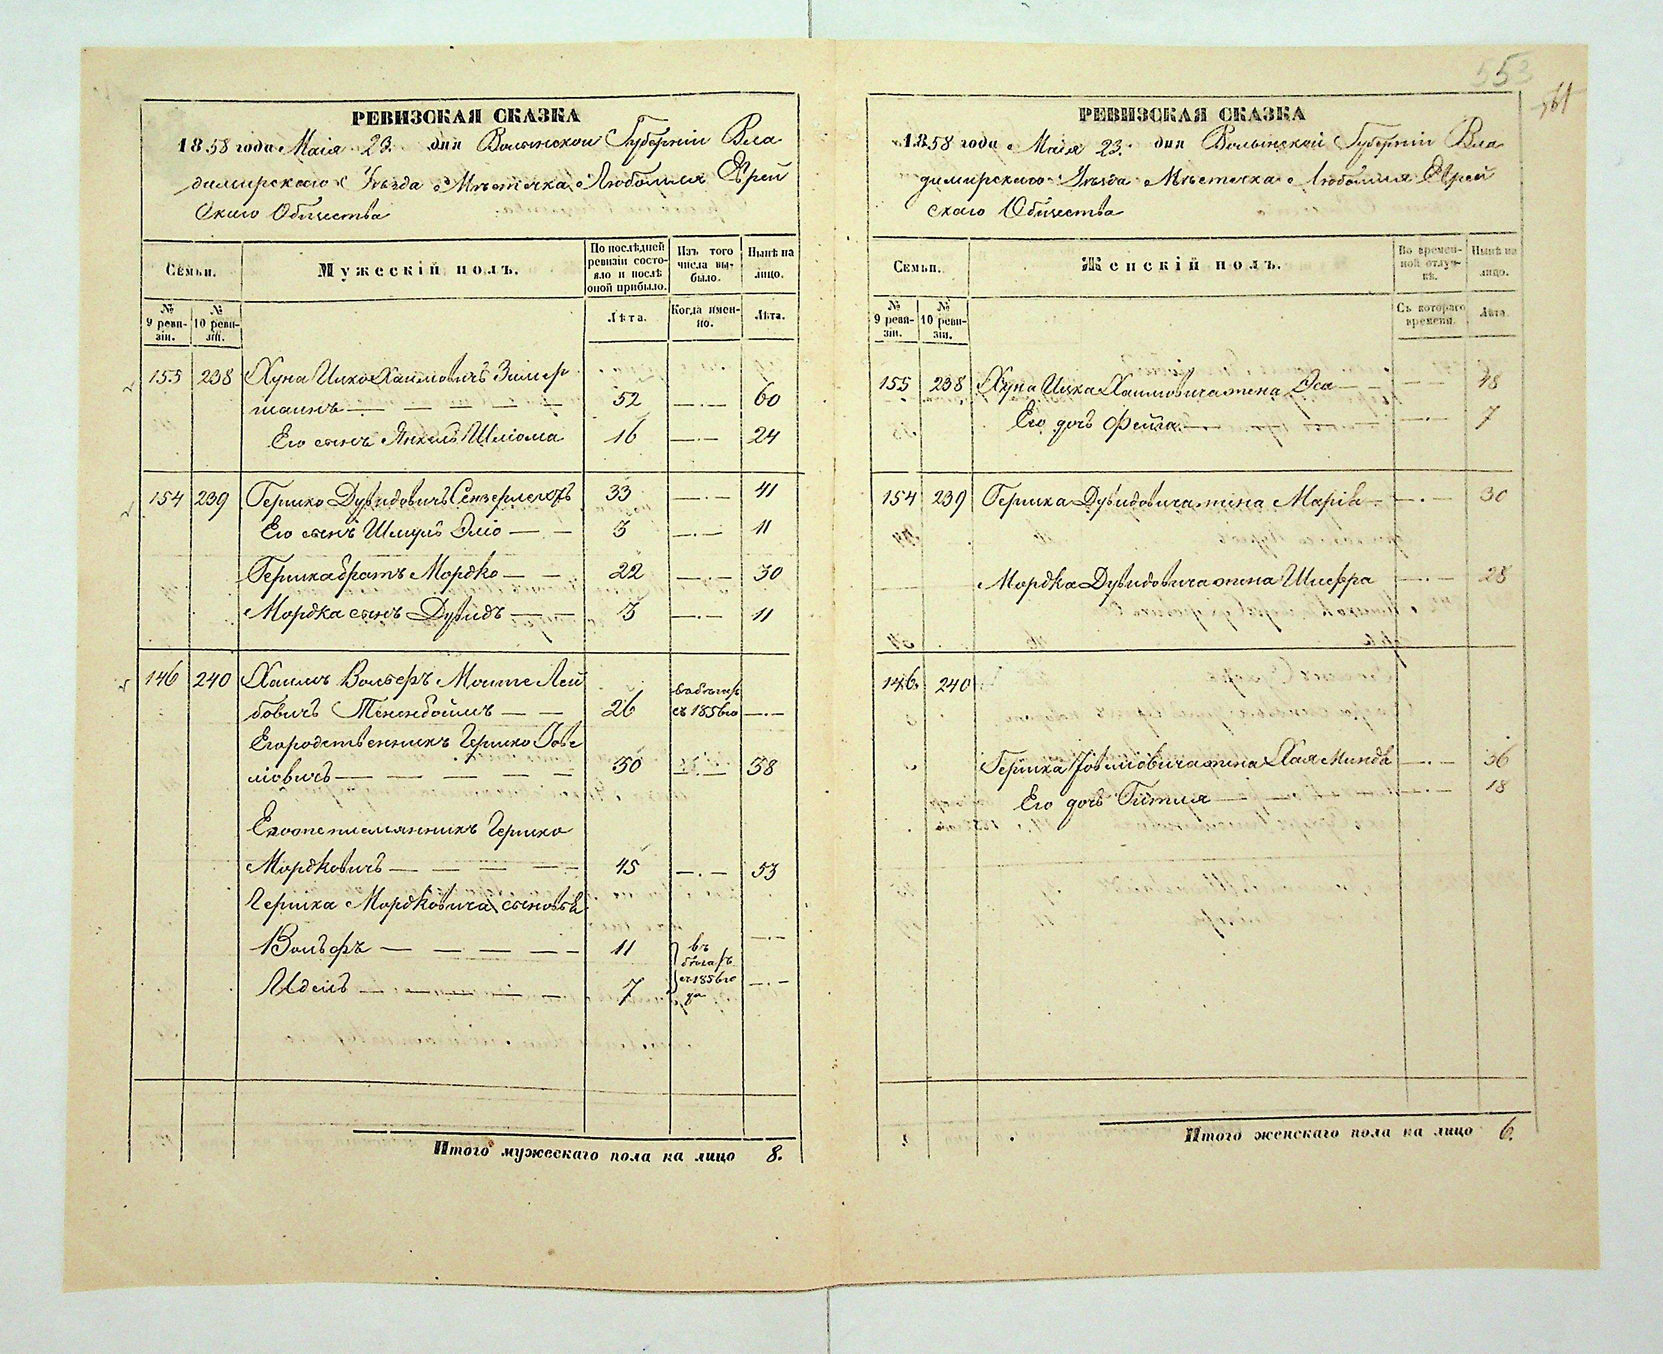 553
561
РЕВИЗСКАЯ СКАЗКА
1858 года Маія 23 дня Волынской Губерніи Вла
димирскаго Уѣзда Мѣстечка Любомля Еврей
скаго Общества
Семьи.
Мужескій полъ.
По послѣдней ревизіи состояло и послѣ оной прибыло.
Изъ того числа выбыло.
Нынѣ на лицо.
№ 9 ревизіи.
№ 10 ревизіи.
Лѣта.
Когда именно.
Лѣта.
155 238 Хуна Ицко Хаимовичъ Зимер
манъ — — — — — 52 —·— 60
Его сынъ Янкель Шлiома 16 —·— 24
154 239 Гершко Дувидовичъ 33 —·— 41
Его сынъ Шмуль Эліо — — 3 —·— 11
Гершка братъ Мордко — — 22 —·— 30
Мордка сынъ Дувидъ — — 3 —·— 11
146 240 Хаимъ Вольфъ Мошко Лей
бовичъ Тененбоймъ — — 26 съ 1856го —·—
Его родственникъ Гершко Іове
ліовичъ — — — — — 50 —·— 58
Его племянникъ Гершко
Мордковичъ — — — — 45 —·— 53
Гершка Мордковича сыновья
Вольфъ — — — — — 11 въ бѣгахъ —·—
Идель — — — — — 7 съ 1856го года —·—
Итого мужескаго пола на лицо 8.
РЕВИЗСКАЯ СКАЗКА
1858 года Маія 23 дня Волынской Губерніи Вла
димирскаго Уѣзда Мѣстечка Любомля Еврей
скаго Общества
Семьи.
Женскій полъ.
Во временной отлучкѣ.
Нынѣ на лицо.
№ 9 ревизіи.
№ 10 ревизіи.
Съ котораго времени.
Лѣта.
155 238 Хуна Ицка Хаимовича жена Эса — —·— 48
Его дочь Фейга — —·— 7
154 239 Гершка Дувидовича жена Марія — —·— 30
Мордка Дувидовича жена Шифра —·— 28
146 240
Гершка Іовеліовича жена Хая Минда —·— 56
Его дочь Гитля — — —·— 18
Итого женскаго пола на лицо 6.